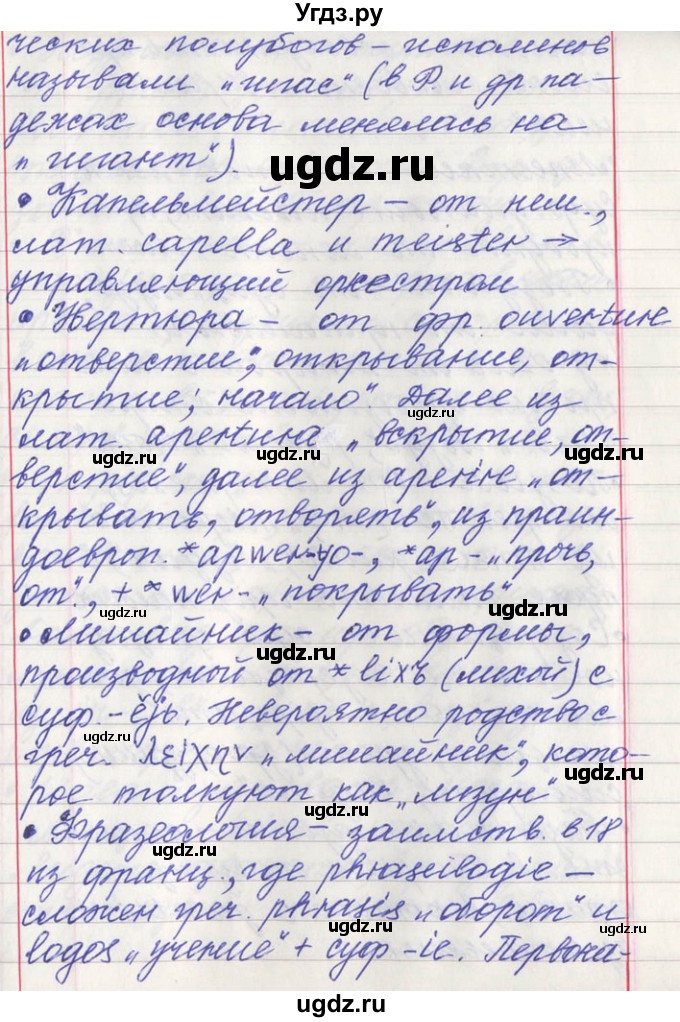 Угдз.ру
ческих полубогов – исполинов
называли „гигас“ (в Р. и др. па-
дежах основа менялась на
„гигант“).
ugdz.ru
• Капельмейстер – от нем.,
лат. capella и meister →
управляющий оркестром
• Увертюра – от фр. ouverture
„отверстие; открывание, от-
крытие; начало“. Далее из
ugdz.ru
лат. apertura „вскрытие, от-
ugdz.ru ugdz.ru ugdz.ru
верстие“, далее из aperire „от-
крывать, отворять“, из праин-
доевроп. *apwer-yo-, *ap- „прочь,
ugdz.ru
от“, + *wer- „покрывать“
ugdz.ru ugdz.ru
• Лишайник – от формы,
ugdz.ru
производной от *lixъ (лихой) с
суф. -ějь. Невероятно родство с
ugdz.ru
греч. λειχην „лишайник“, кото-
ugdz.ru
рое толкуют как „лизун“
ugdz.ru
• Фразеология – заимств. в 18
ugdz.ru
из франц., где phraseilogie –
сложен греч. phrasis „оборот“ и
ugdz.ru
logos „учение“ + суф -ie. Первона-
ugdz.ru
ugdz.ru